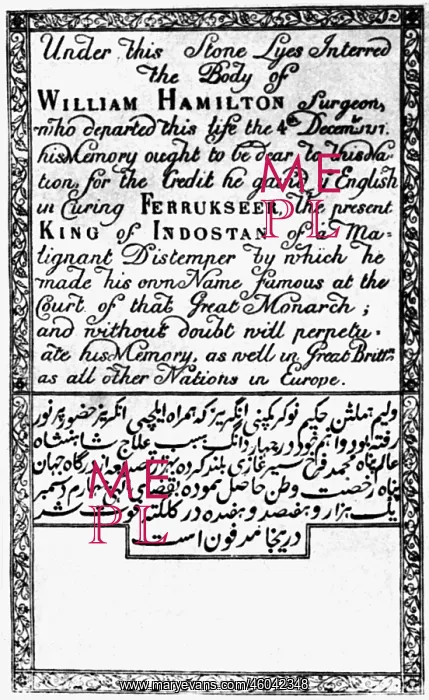 Under this Stone Lyes Interred
the Body of
WILLIAM HAMILTON Surgeon,
who departed this life the 4th Decemr. 1717.
his Memory ought to be dear to this Na-
tion, for the Credit he gain'd ye English
in Curing FERRUKSEER, the present
KING of INDOSTAN of a Ma-
lignant Distemper by which he
made his own Name famous at the
Court of that Great Monarch ;
and without doubt will perpetu-
ate his Memory, as well in Great Brittn.
as all other Nations in Europe.
ولیم هملتن حکیم نوکر کمپنی انگریز که همراه ایلچی انگریز حضور پر نور
رفته بود و اسم خود در چهار دانگ بسبب علاج شاهنشاه
عالم پناه محمد فرخ سیر غازی بلند کرده بهزار از درگاه جهان
پناه رخصت وطن حاصل نموده بقضای الهی چهارم دسمبر
یک هزار و هفصد و هفده در کلکته فوت شد
دریخا مدفون است
ME
PL
ME
PL
www.maryevans.com/46042348